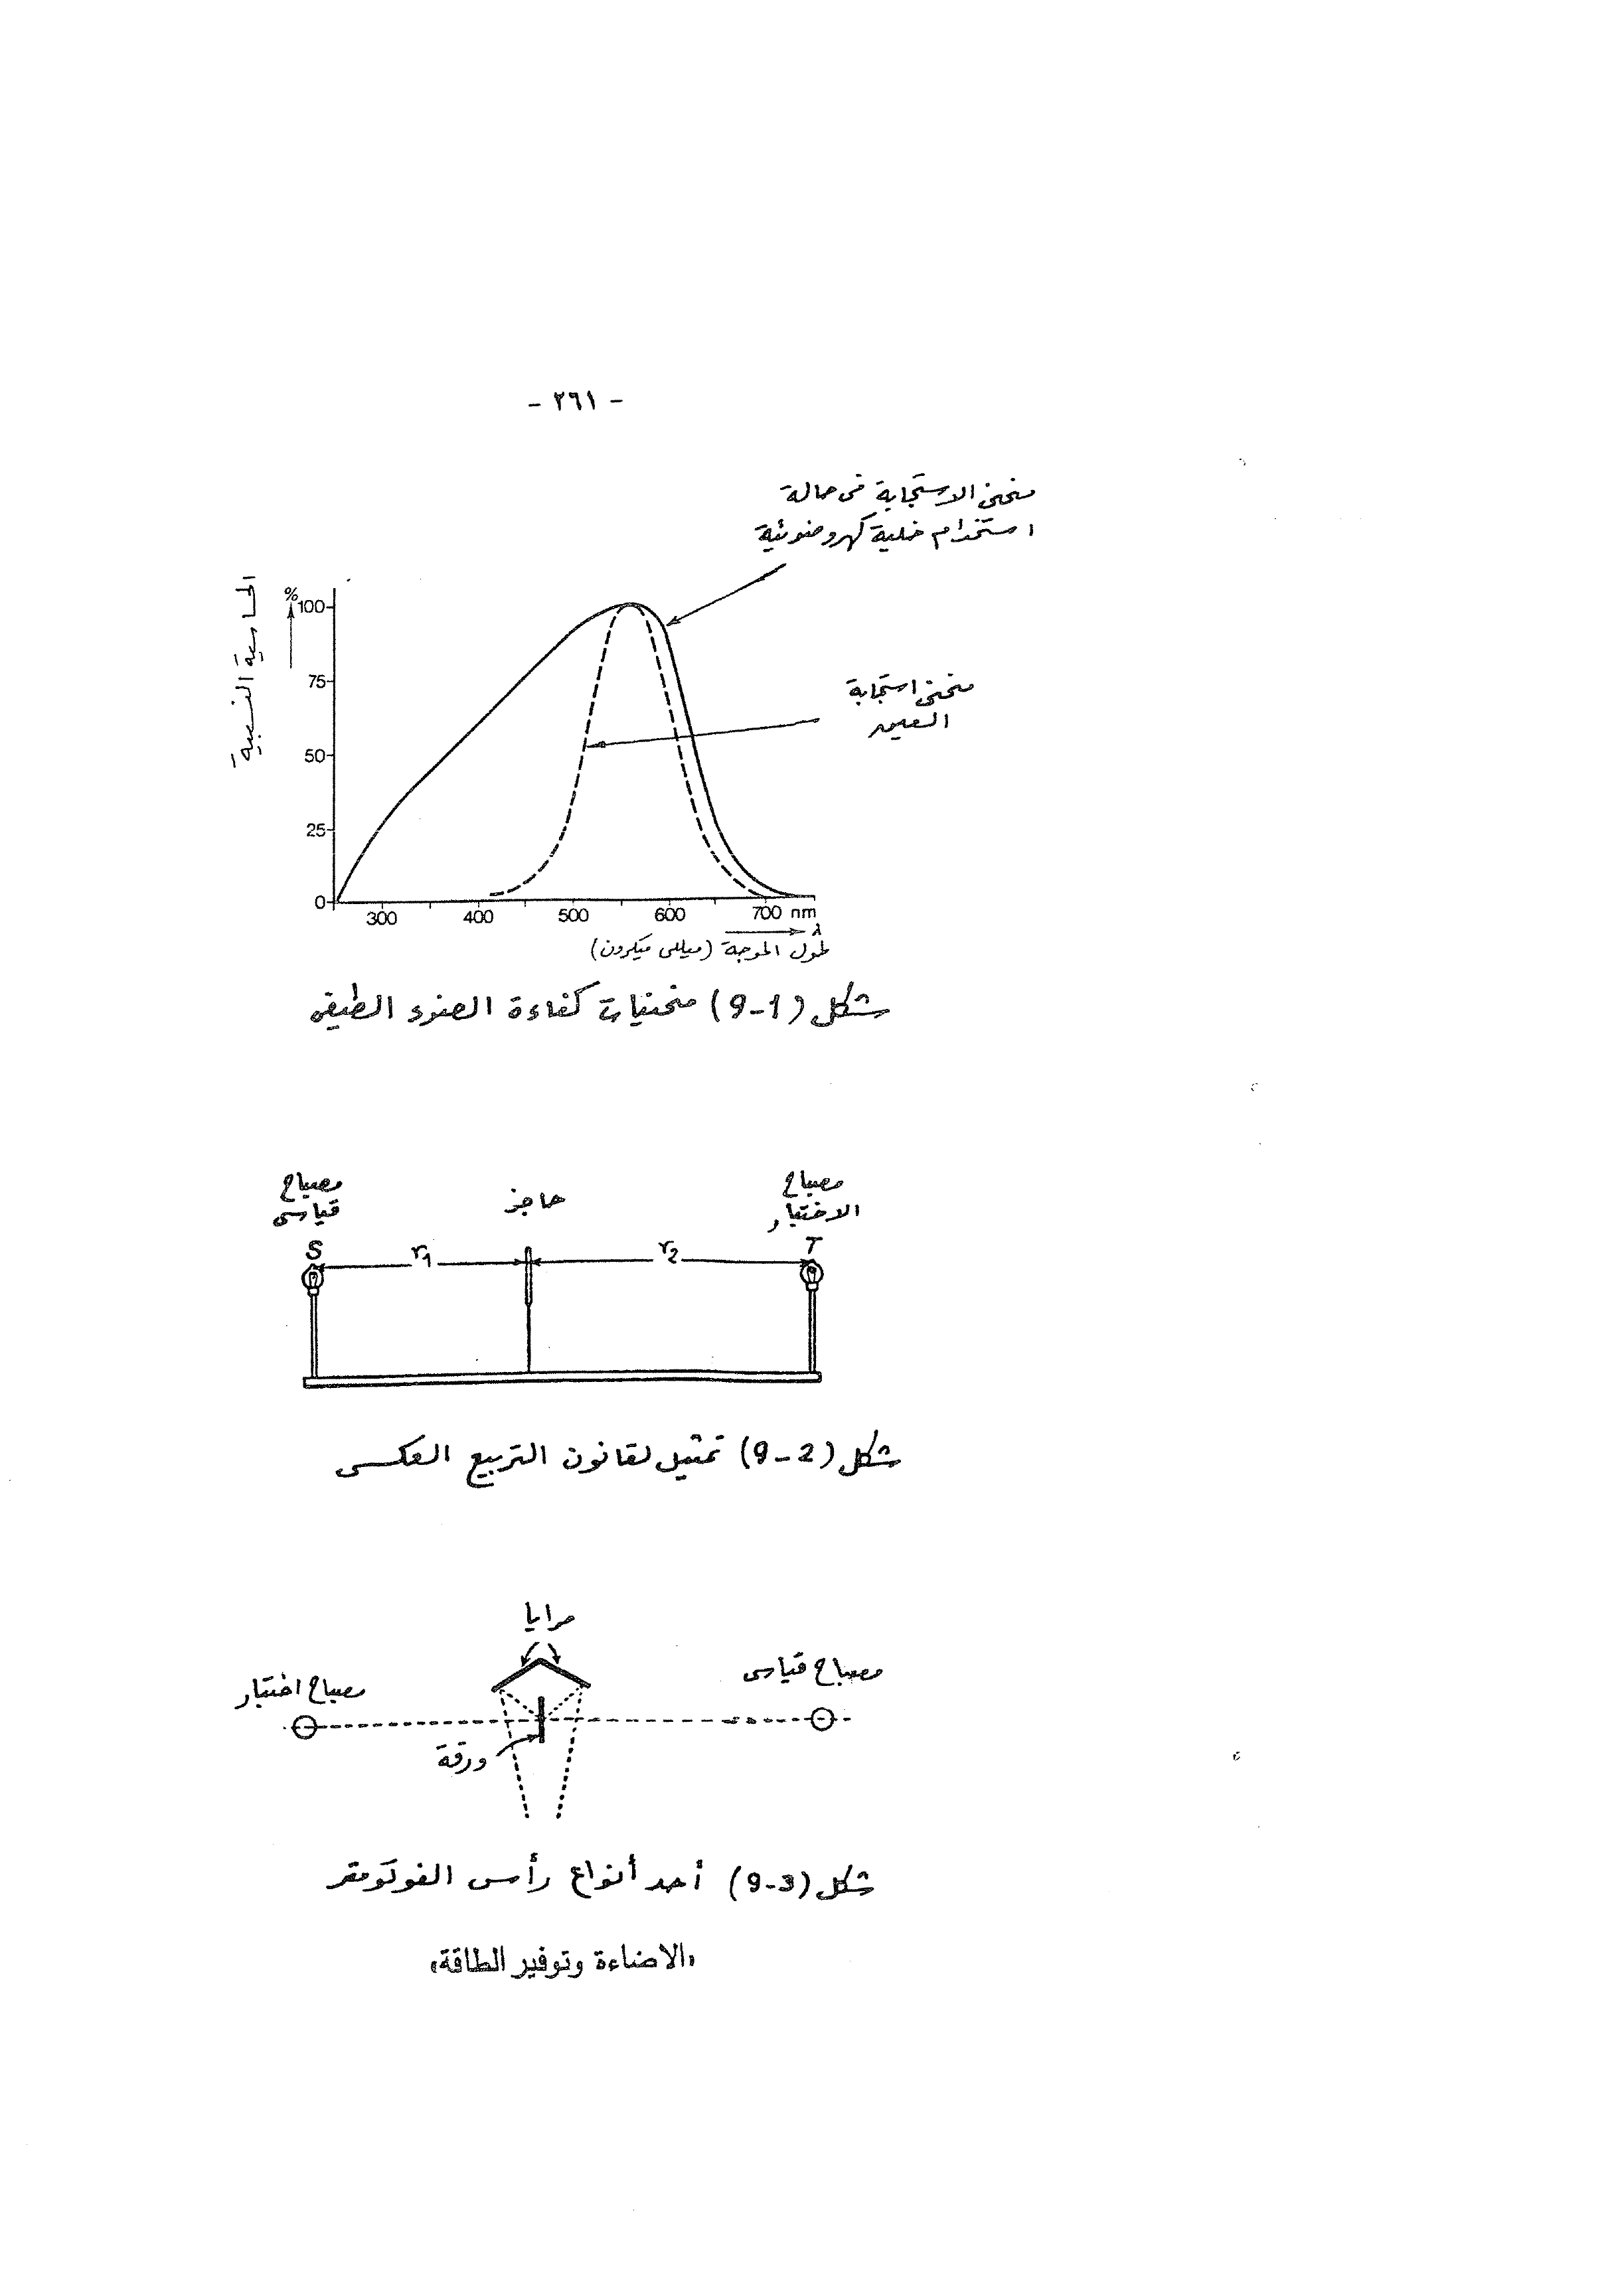 - ٢٦١ -
منحنى الاستجابة فى حالة
استخدام خلية كهروضوئية
الحساسية النسبية
%
100
75
50
25
0
منحنى استجابة
العين
300 400 500 600 700 nm
λ
طول الموجة (ميللى ميكرون)
شكل (9-1) منحنيات كفاءة الضوء الطيفى
مصباح قياسى
حاجز
مصباح الاختبار
S r1 r2 T
شكل (9-2) تمثيل لقانون التربيع العكسى
مرايا
مصباح قياسى
مصباح اختبار
ورقة
شكل (9-3) أحد أنواع رأس الفوتومتر
«الاضاءة وتوفير الطاقة»